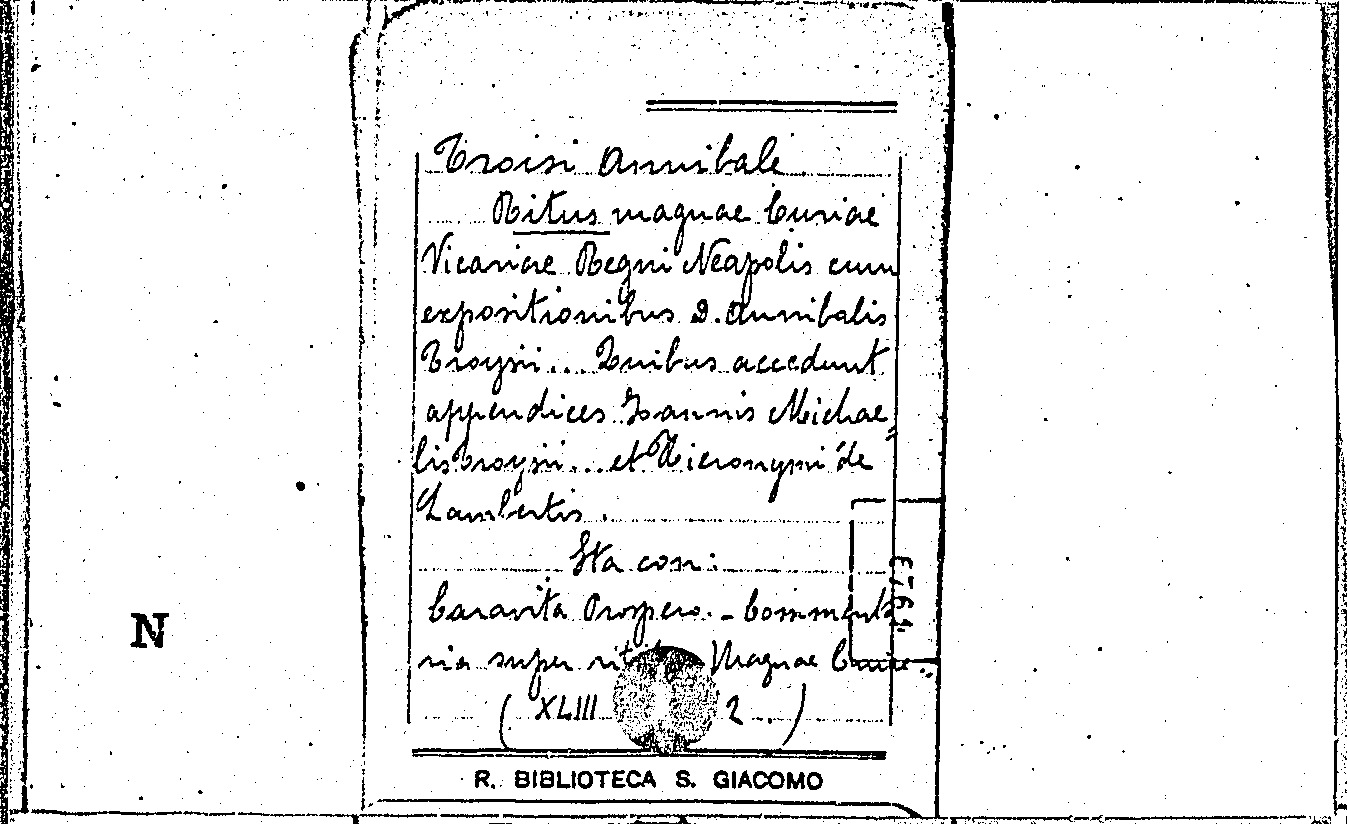 Troisi Annibale
Ritus magnae Curiae
Vicariae Regni Neapolis cum
expositionibus D. Annibalis
Troysii... Quibus accedunt
appendices Ioannis Michae=
lis Troysii... et Hieronymi de
Lambertis.
Sta con:
Caravita Prospero. - Commenta
ria super Magnae Curiae..
(XLIII 2.)
R. BIBLIOTECA S. GIACOMO
N